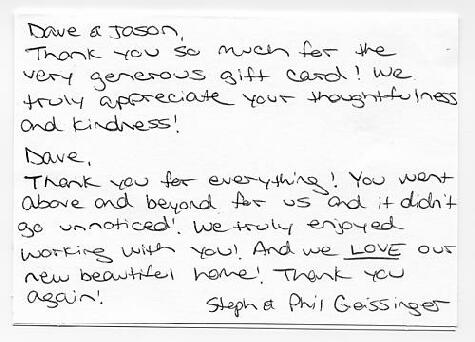 Dave & Jason,
Thank you so much for the
very generous gift card! We
truly appreciate your thoughtfulness
and kindness!
Dave,
Thank you for everything! You went
above and beyond for us and it didn't
go unnoticed! We truly enjoyed
working with you! And we LOVE our
new beautiful home! Thank you
again!
Steph & Phil Geissinger